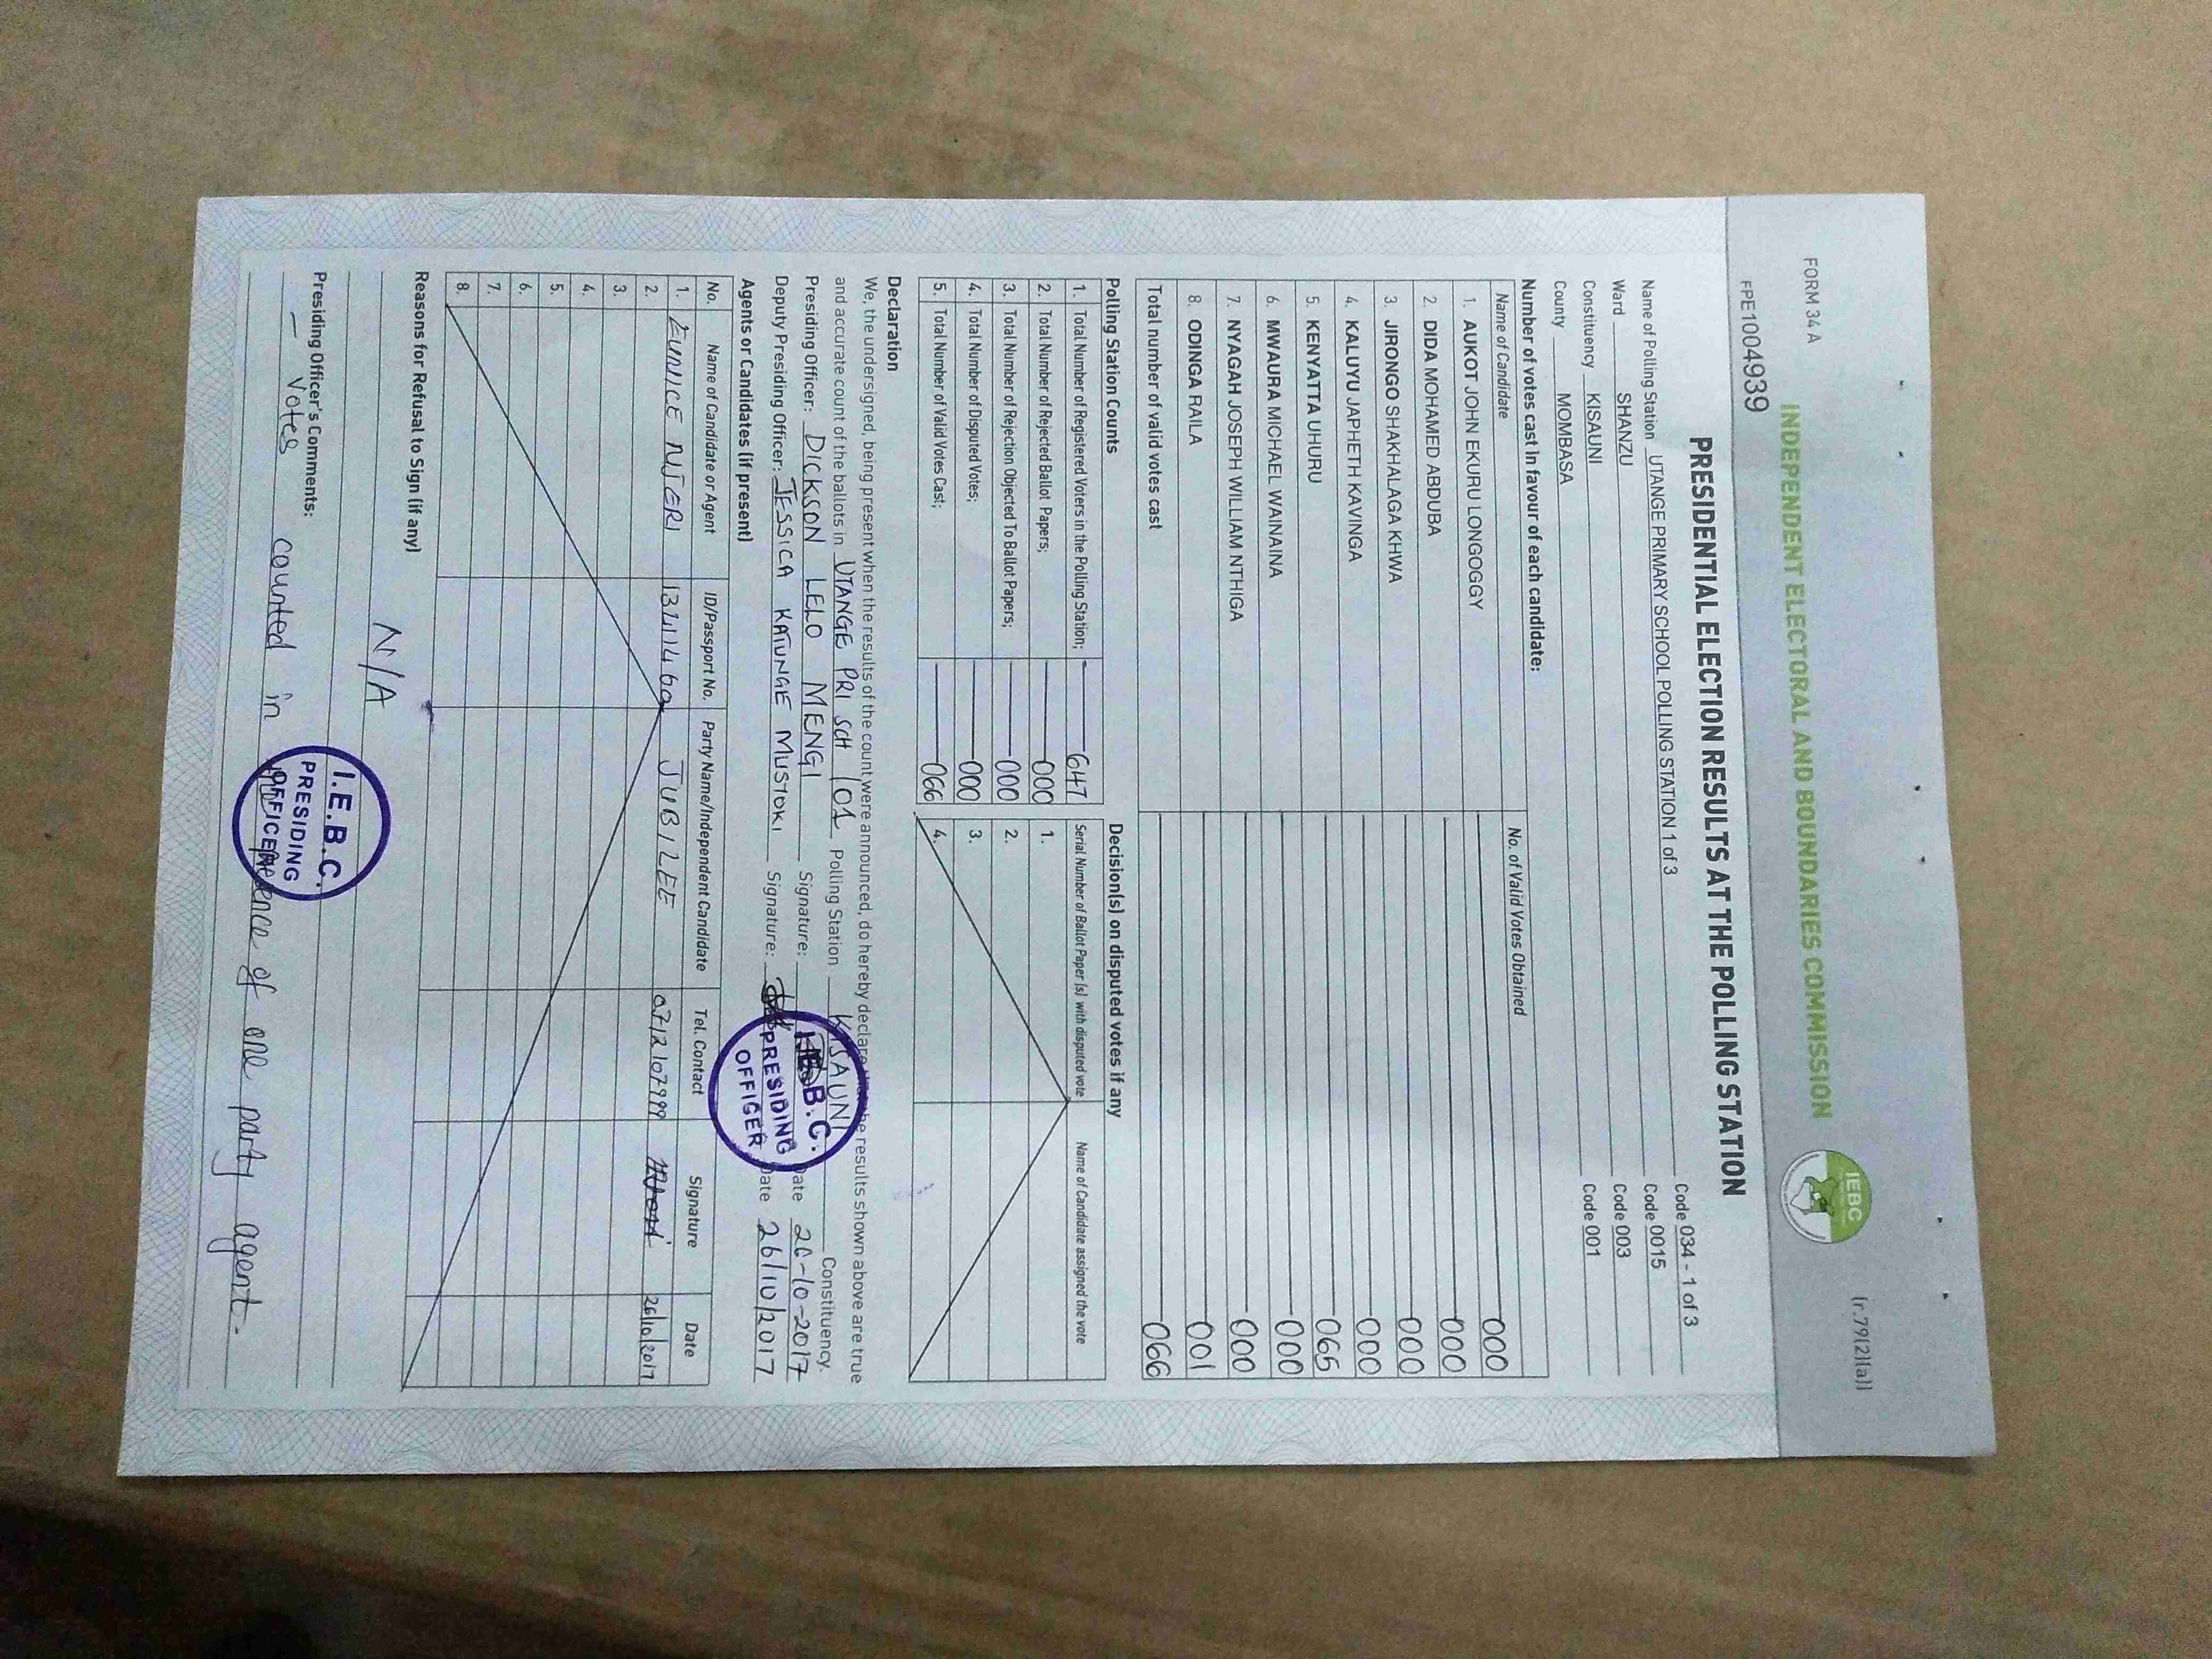 FORM 34 A
(r.79(2)(a))
INDEPENDENT ELECTORAL AND BOUNDARIES COMMISSION
IEBC
FPE10049939
PRESIDENTIAL ELECTION RESULTS AT THE POLLING STATION
Name of Polling Station UTANGE PRIMARY SCHOOL POLLING STATION 1 of 3 Code 034 - 1 of 3
Ward SHANZU Code 0015
Constituency KISAUNI Code 003
County MOMBASA Code 001
Number of votes cast in favour of each candidate:
Name of Candidate No. of Valid Votes Obtained
1. AUKOT JOHN EKURU LONGOGGY 000
2. DIDA MOHAMED ABDUBA 000
3. JIRONGO SHAKHALAGA KHWA 000
4. KALUYU JAPHETH KAVINGA 000
5. KENYATTA UHURU 065
6. MWAURA MICHAEL WAINAINA 000
7. NYAGAH JOSEPH WILLIAM NTHIGA 000
8. ODINGA RAILA 001
Total number of valid votes cast 066
Polling Station Counts Decision(s) on disputed votes if any
1. Total Number of Registered Voters in the Polling Station; 647 Serial Number of Ballot Paper (s) with disputed vote Name of Candidate assigned the vote
2. Total Number of Rejected Ballot Papers; 000 1.
3. Total Number of Rejection Objected To Ballot Papers; 000 2.
4. Total Number of Disputed Votes; 000 3.
5. Total Number of Valid Votes Cast; 066 4.
Declaration
We, the undersigned, being present when the results of the count were announced, do hereby declare the results shown above are true
and accurate count of the ballots in UTANGE PRI SCH 101 Polling Station KISAUNI Constituency.
Presiding Officer: DICKSON LELO MENGI Signature: Date 26-10-2017
Deputy Presiding Officer: JESSICA KATUNGE MUSTOKI Signature: Date 26/10/2017
I.E.B.C.
PRESIDING
OFFICER
Agents or Candidates (if present)
No. Name of Candidate or Agent ID/Passport No. Party Name/Independent Candidate Tel. Contact Signature Date
1. EUNICE NJERI JUBILEE 0712107999 26/10/2017
2.
3.
4.
5.
6.
7.
8.
Reasons for Refusal to Sign (if any)
N/A
Presiding Officer's Comments:
— Votes counted in presence of one party agent.
I.E.B.C.
PRESIDING
OFFICER